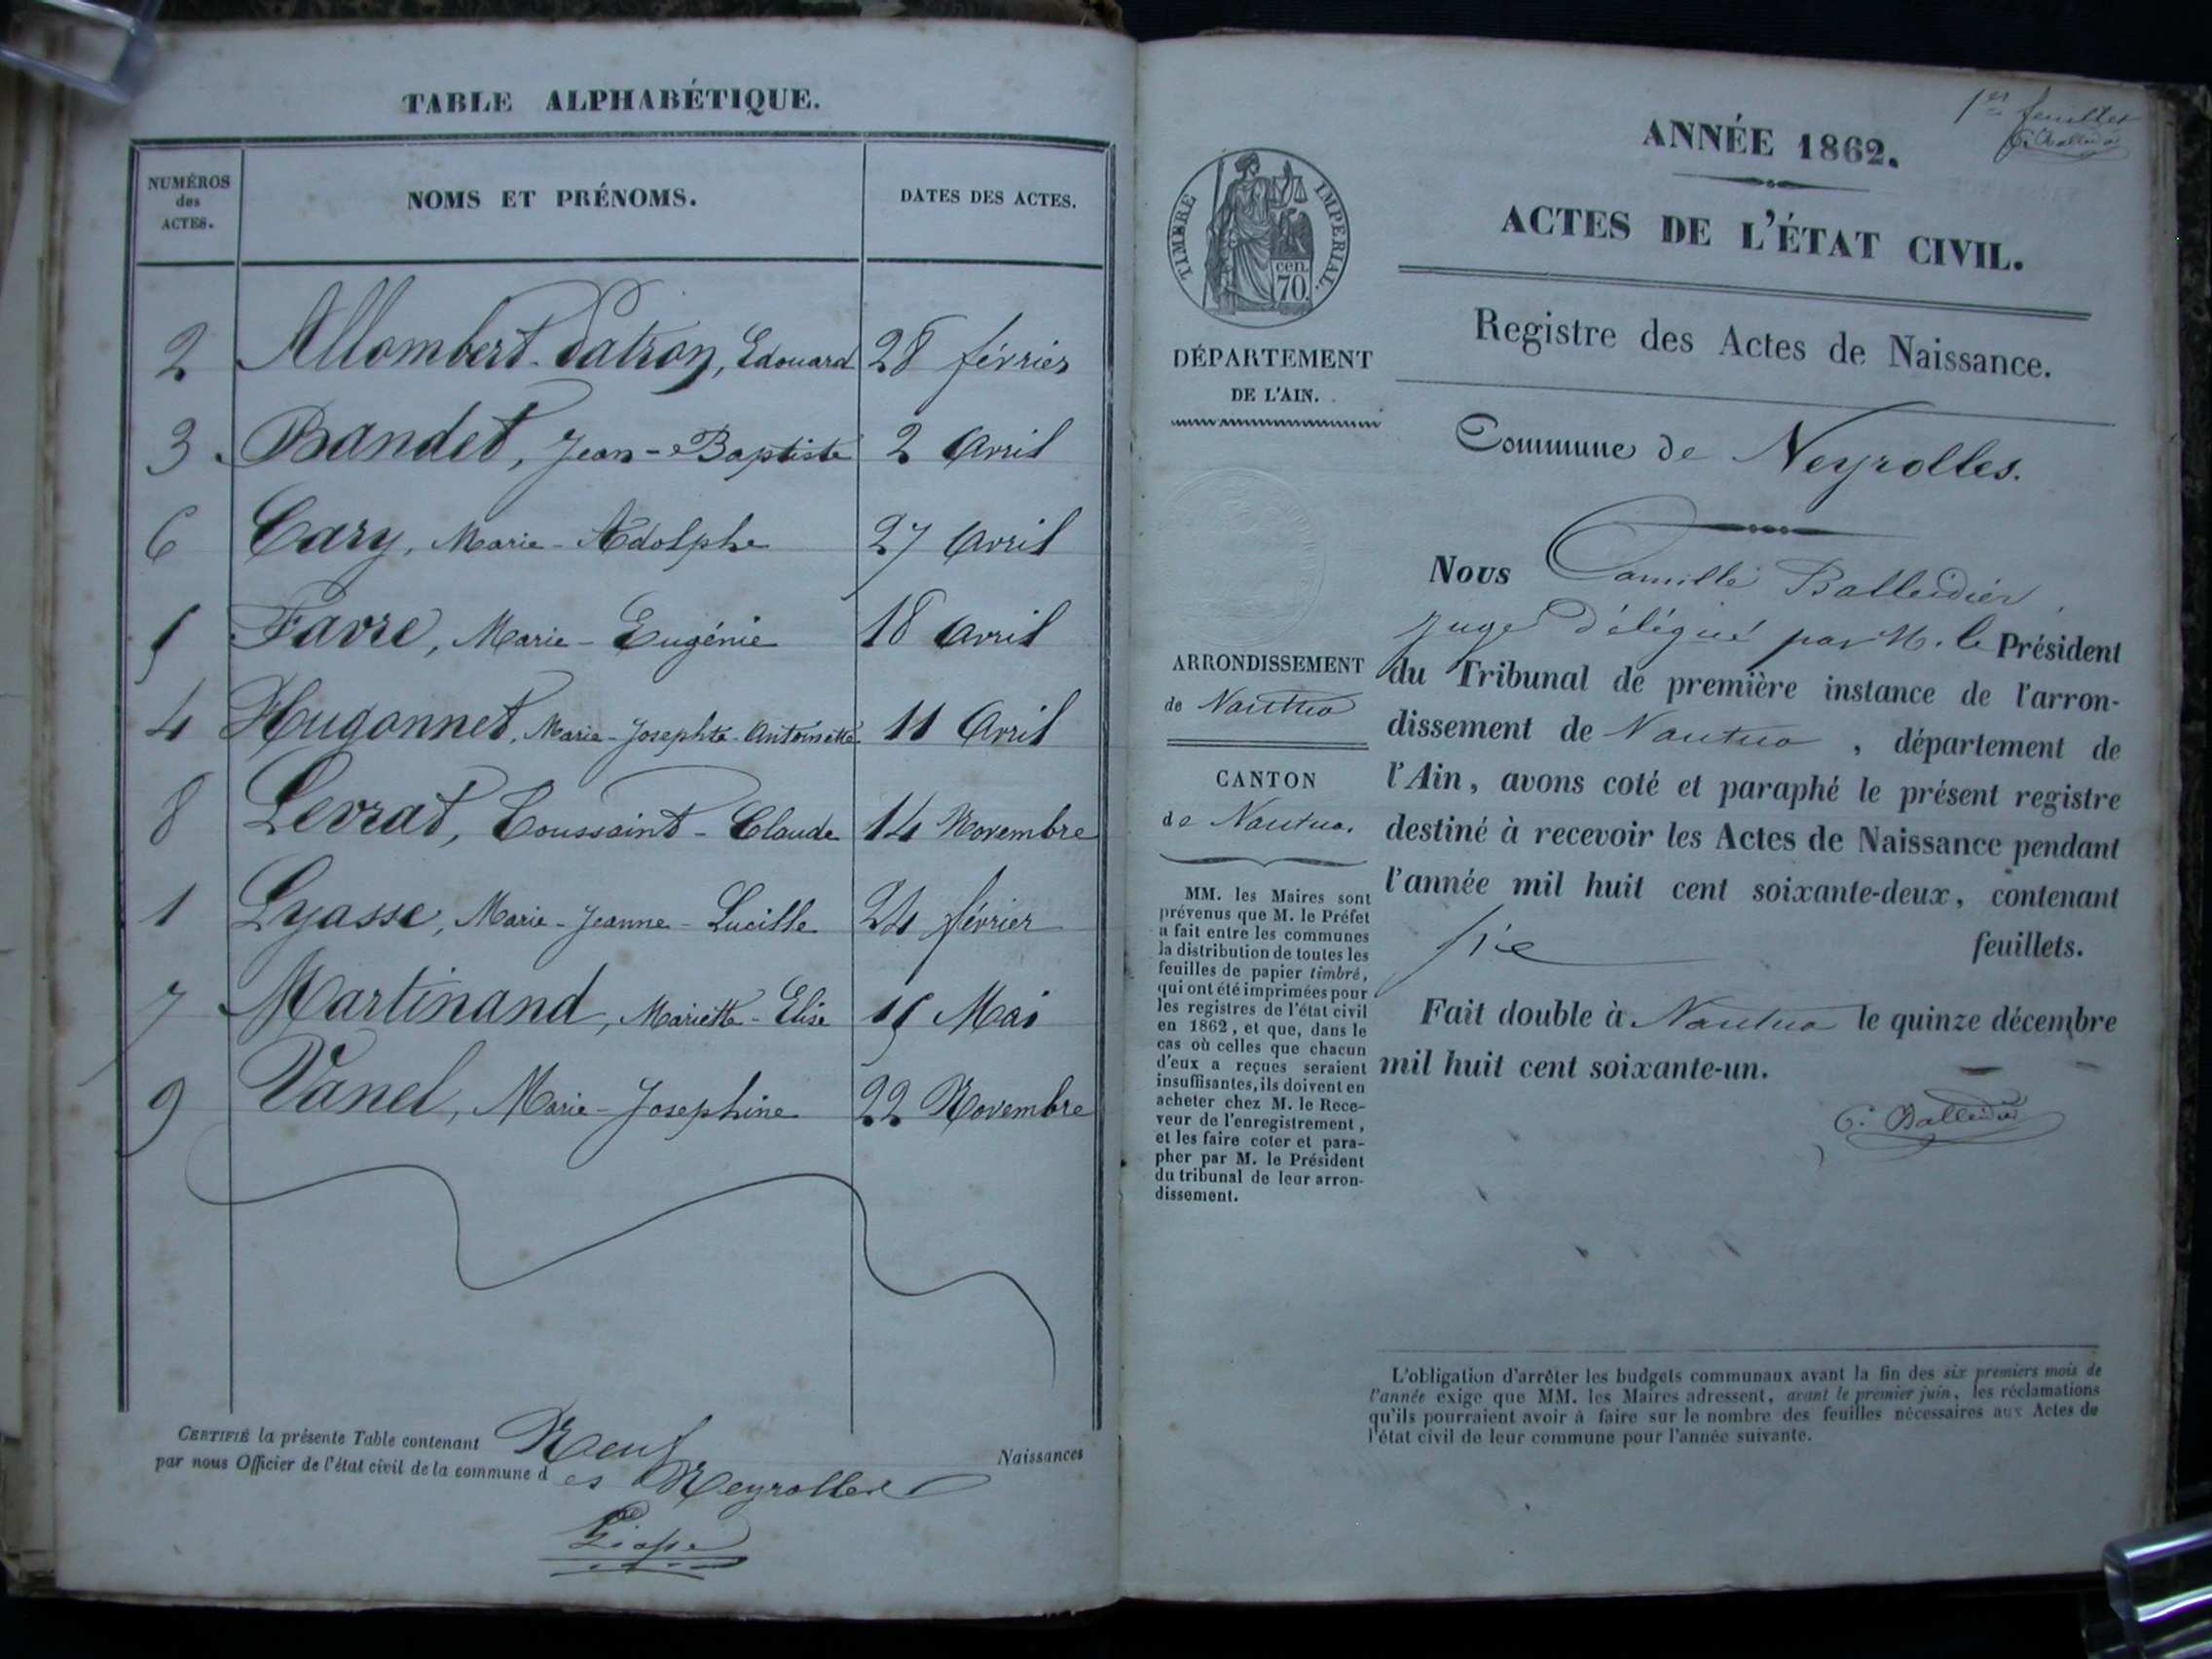 TABLE ALPHABÉTIQUE.
NUMÉROS des ACTES. NOMS ET PRÉNOMS. DATES DES ACTES.
2 Allombert-Patron, Edouard 28 février
3 Bandet, Jean-Baptiste 2 Avril
6 Cary, Marie-Adolphe 27 Avril
5 Favre, Marie-Eugénie 18 Avril
4 Hugonnet, Marie-Josephte-Antoinette 11 Avril
8 Levrat, Toussaint-Claude 14 Novembre
1 Lyasse, Marie-Jeanne-Lucille 24 février
7 Martinand, Mariette-Elise 15 Mai
9 Vanel, Marie-Josephine 22 Novembre
CERTIFIÉ la présente Table contenant Neuf Naissances
par nous Officier de l'état civil de la commune d es Neyrolles
1er feuillet
C. Balleidier
ANNÉE 1862.
ACTES DE L'ÉTAT CIVIL.
Registre des Actes de Naissance.
Commune de Neyrolles.
TIMBRE IMPERIAL.
cen.
70.
DÉPARTEMENT
DE L'AIN.
ARRONDISSEMENT
de Nantua
CANTON
de Nantua.
MM. les Maires sont
prévenus que M. le Préfet
a fait entre les communes
la distribution de toutes les
feuilles de papier timbré,
qui ont été imprimées pour
les registres de l'état civil
en 1862, et que, dans le
cas où celles que chacun
d'eux a reçues seraient
insuffisantes, ils doivent en
acheter chez M. le Rece-
veur de l'enregistrement,
et les faire coter et para-
pher par M. le Président
du tribunal de leur arron-
dissement.
Nous Camille Balleidier,
juge délégué par M. le Président
du Tribunal de première instance de l'arron-
dissement de Nantua, département de
l'Ain, avons coté et paraphé le présent registre
destiné à recevoir les Actes de Naissance pendant
l'année mil huit cent soixante-deux, contenant
six feuillets.
Fait double à Nantua le quinze décembre
mil huit cent soixante-un.
C. Balleidier
L'obligation d'arrêter les budgets communaux avant la fin des six premiers mois de
l'année exige que MM. les Maires adressent, avant le premier juin, les réclamations
qu'ils pourraient avoir à faire sur le nombre des feuilles nécessaires aux Actes de
l'état civil de leur commune pour l'année suivante.